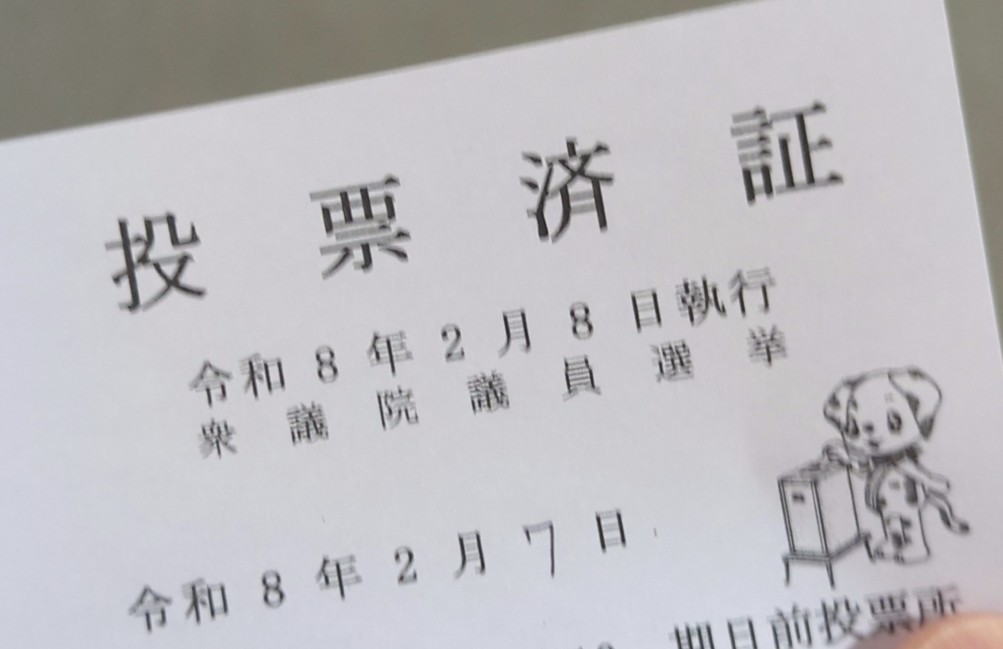 投票済証
令和8年2月8日執行
衆議院議員選挙
令和8年2月7日
期日前投票所